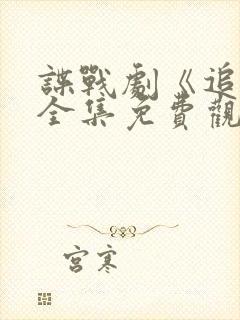 諜戰劇《追
全集免費觀
宮寒